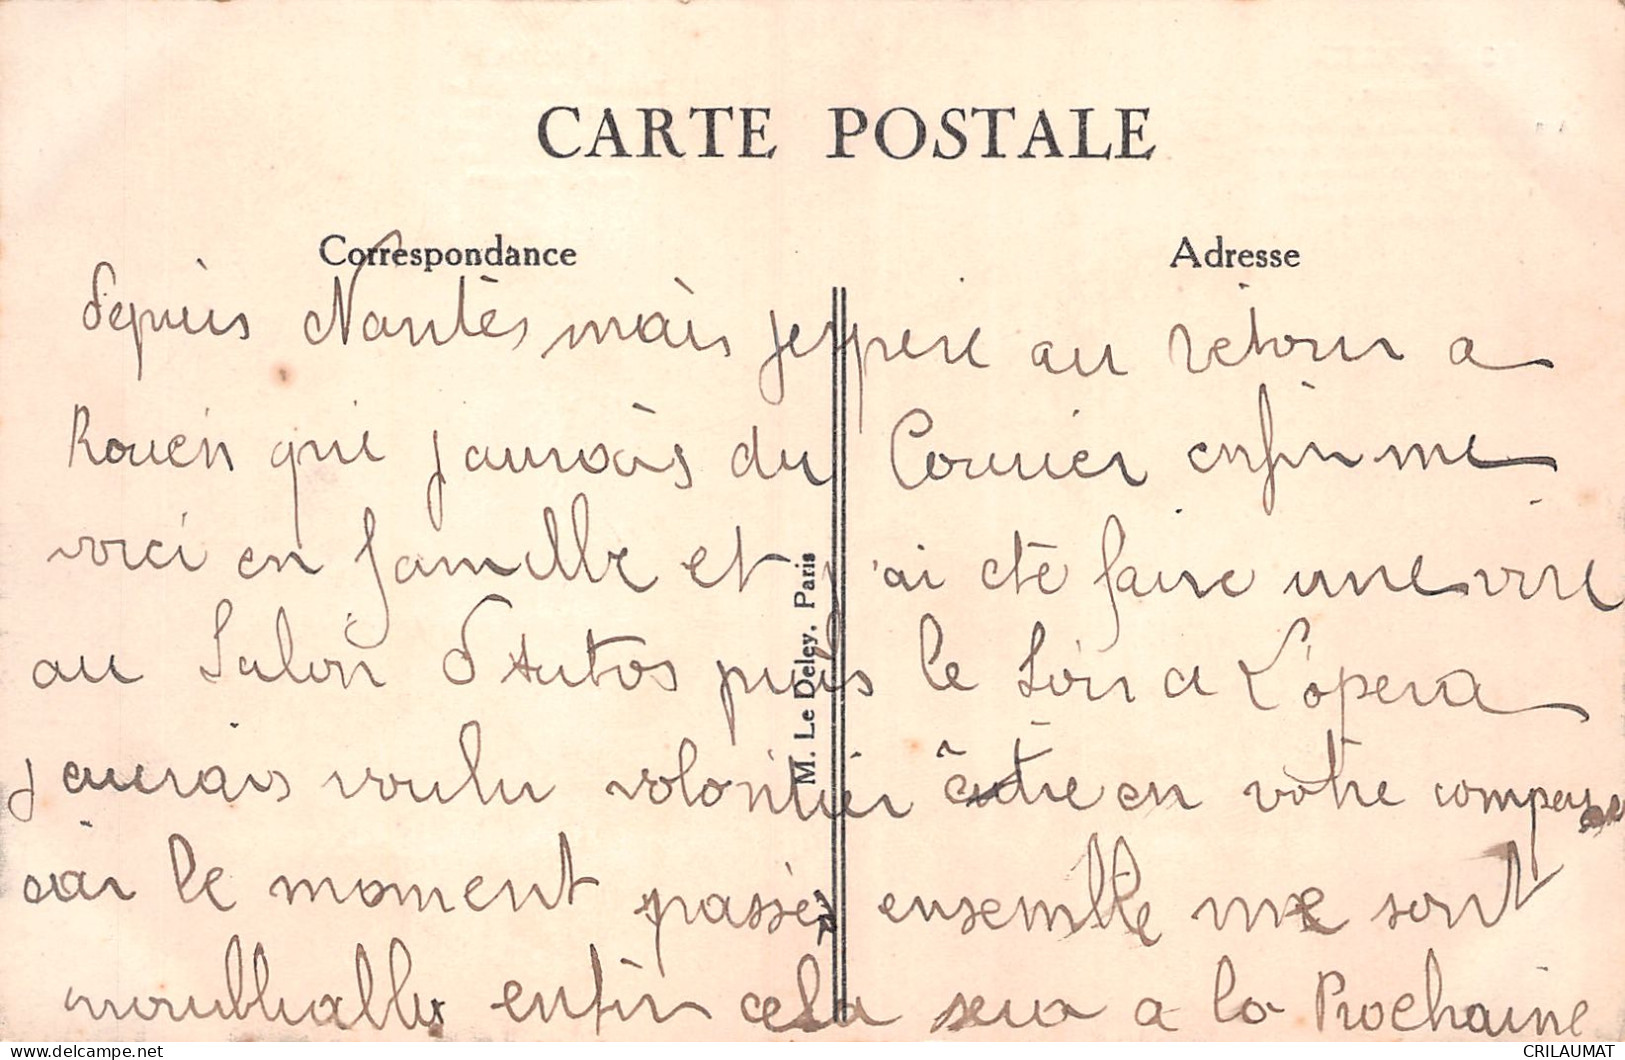 CARTE POSTALE
Correspondance
Adresse
depuis Nantès mais jesper au retour a
Rouen qui jaurais du Courrier enfin me
voici en famille et j'ai eté faire une vire
au Salon d'Autos puis le soir a L'opera
jaurais voulu volontier être en votre
car le moment passés ensemble me sont
innoublialles enfin cela sera a la Prochaine
M. Le Deley, Paris
delcampe.net
CRILAUMAT